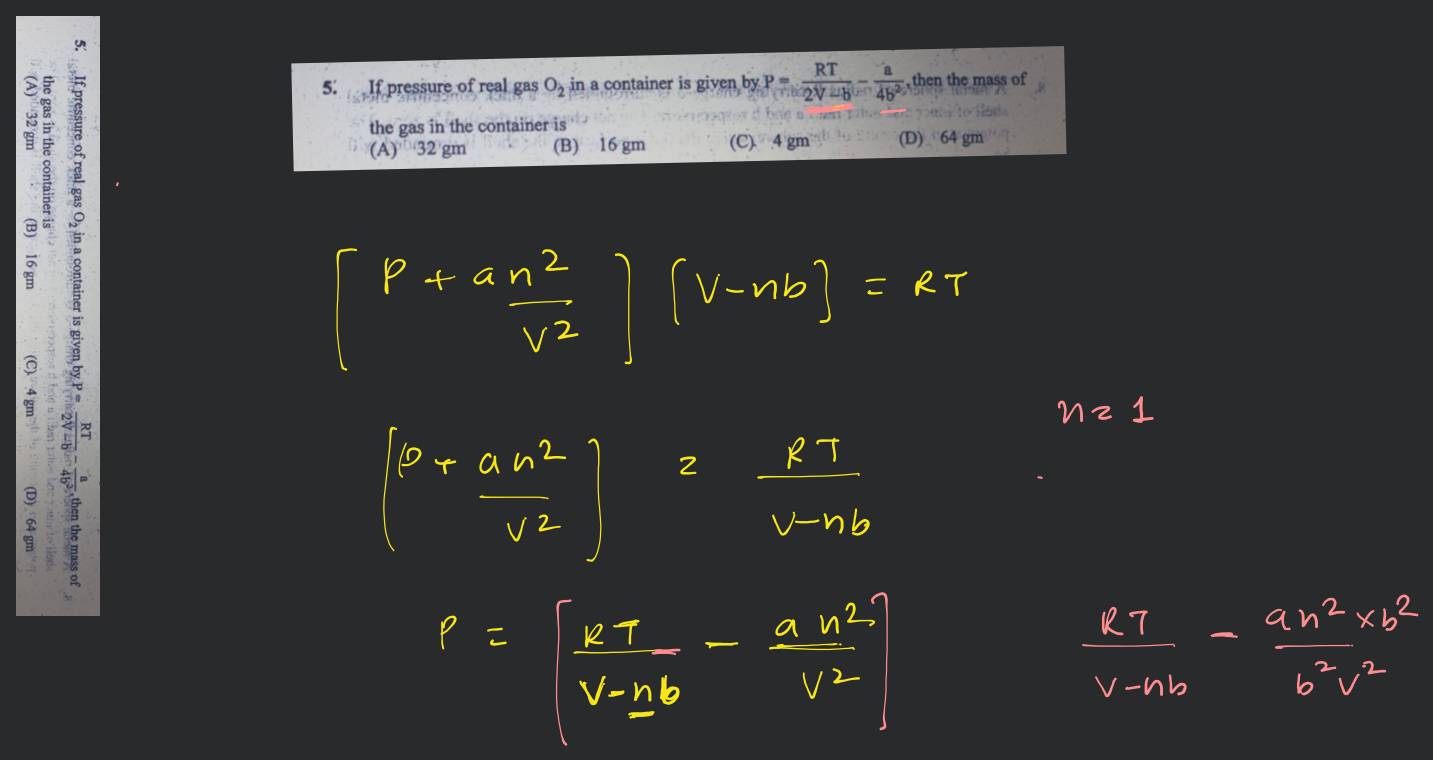 5. If pressure of real gas O₂ in a container is given by P = RT/(2V – b) – a/4b², then the mass of
the gas in the container is
(A) 32 gm (B) 16 gm (C) 4 gm (D) 64 gm
5. If pressure of real gas O₂ in a container is given by P = RT/(2V – b) – a/4b², then the mass of
the gas in the container is
(A) 32 gm (B) 16 gm (C) 4 gm (D) 64 gm
[P + an²/V²] [V-nb] = RT
n = 1
[P + an²/V²] = RT/(V-nb)
P = [RT/(V-nb) - an²/V²] RT/(V-nb) - an²×b²/b²V²